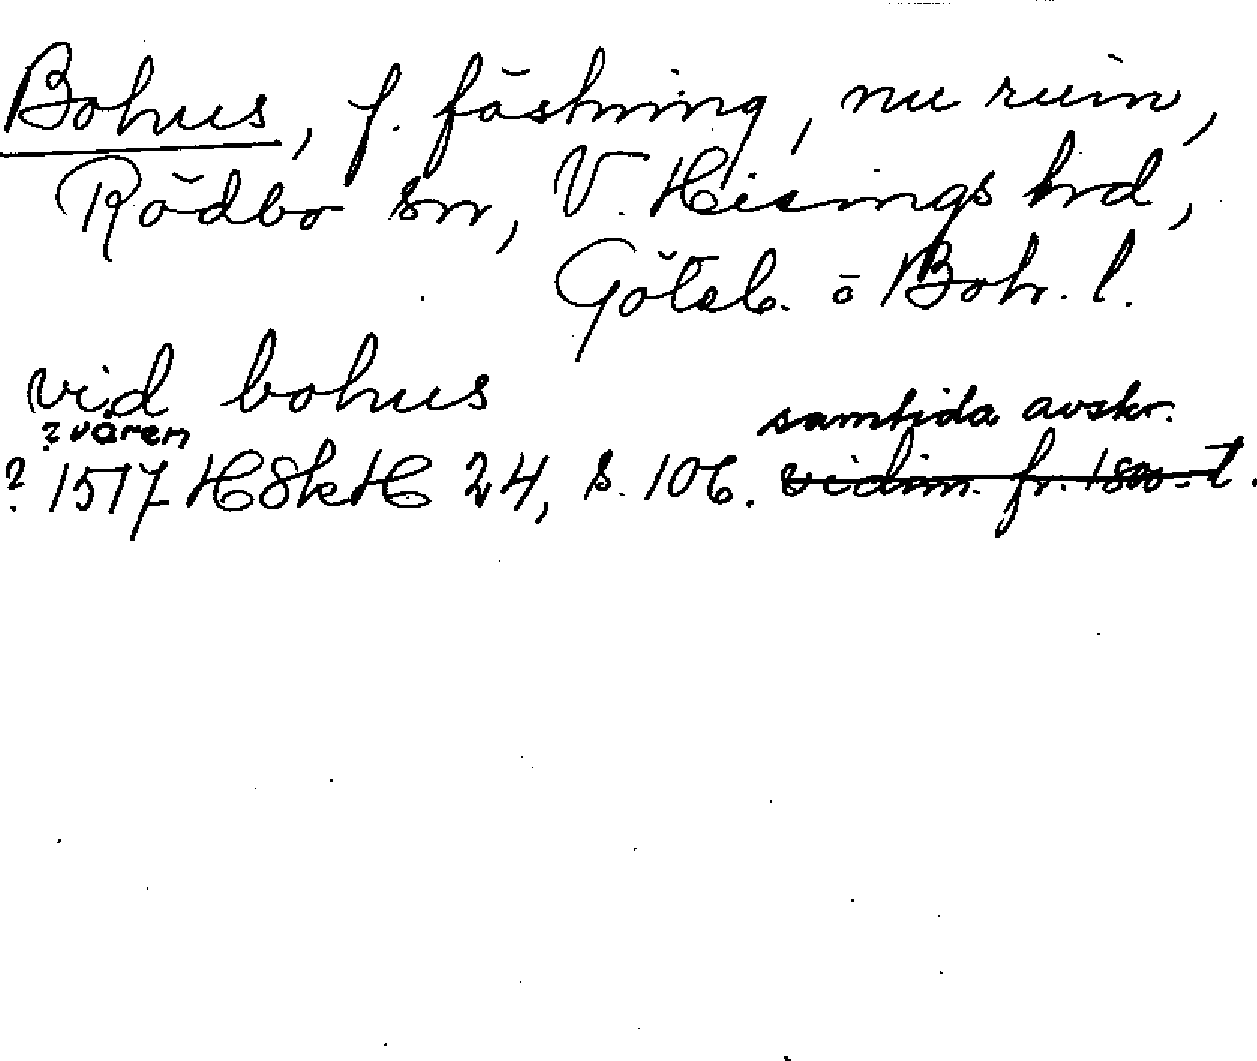 Bohus, f. fästning, nu ruin,
Rödbo sn, V. Hisings hrd,
Göteb. o Boh. l.
vid bohus
samtida avskr.
? våren
? 1517 HSkH 24, s. 106. vidim. fr. 1800-t.